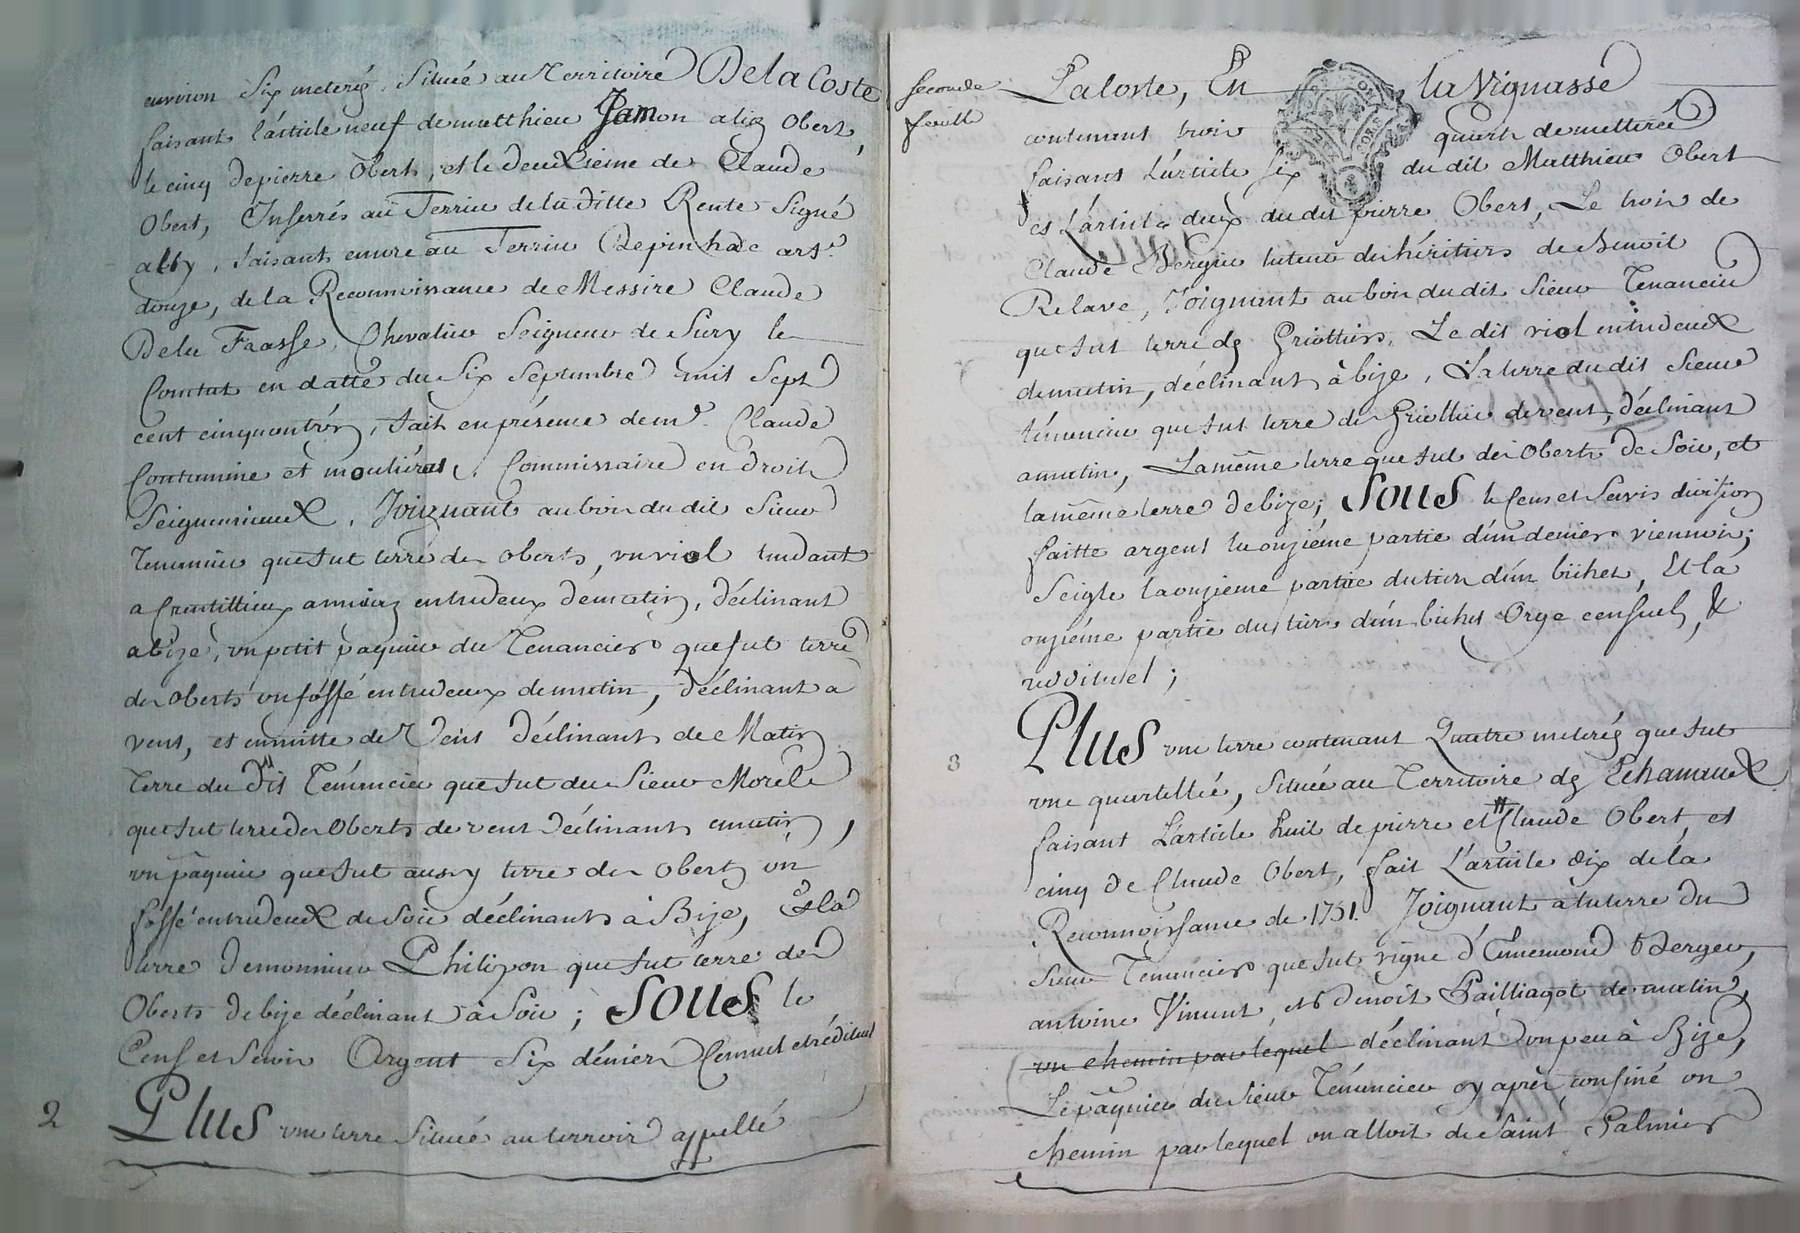 environ six meterés, située au Territoire De la Coste
faisant l'article neuf de matthieu Jamon alias Obert,
le cinq de pierre Obert, et le deuxieme de Claude
Obert, Inserrés au Terrier de la ditte Rente Signé
alby, faisant encore au Terrier Depinhac art.e
douze, de la Reconnoissance de Messire Claude
De la Frasse, Chevalier Seigneur de Sury le
Comtat en datte du six Septembre mil sept
cent cinquantün, fait en présence de m.r Claude
Contamine et mouliéras, Commissaire en droits
Seigneuriaux, Joignant au bois du dit Sieur
Tenancier que fut terre des oberts, un viol tendant
a Crentillieux entredeux de matin, déclinant
a bize, un petit paquier du Tenancier que fut terre
des Oberts un fossé entredeux de matin, déclinant a
vent, et ensuitte de Vent déclinant de Matin
Terre du dit Ténancier que fut du Sieur Morel
que fut terre des Oberts de vent déclinant a matin,
un pâquier que fut aussy terre des Oberts un
fossé entredeux de Soir déclinant à Bize, Et la
terre de monsieur Philipon que fut terre des
Oberts de bize déclinant à Soir; SOUS le
Cens et Servis Argent Six déniers Censuel et réddituel
2 Plus une terre Située au terroir appellé
Seconde feuille
La Coste, En la Vignasse
contenant trois quarts de metterée
faisant L'article six du dit Matthieu Obert
et L'article deux du dit pierre Obert, Le trois de
Claude Bergier tuteur des héritiers de Benoit
Relave, Joignant au bois du dit Sieur Tenancier
que fut terre des Griottiers, Le dit viol entredeux
de matin, déclinant à bize, La terre du dit Sieur
ténancier que fut terre des Griottier de vent, déclinant
a matin, La même terre que fut des Oberts de Soir, et
la même terre de bize; SOUS le Cens et Servis division
faitte argent la onzième partie d'un denier viennois;
Seigle la onzieme partie du tiers d'un bichet, Et la
onziéme partie du tiers d'un bichet Orge censuel, &
reddituel;
3 Plus une terre contenant Quatre meterés que fut
une quartellée, Située au Territoire des Echanaux
faisant L'article huit de pierre et Claude Obert, et
cinq de Claude Obert, fait L'article dix de la
Reconnoissance de 1751. Joignant a la terre du
Sieur Tenancier que fut vigne d'Ennemond Berger,
antoine Vincent, et Benoit Pailliagot de matin,
un chemin par lequel déclinant un peu à Bize,
Le pâquier du Sieur Ténancier cy après confiné un
chemin par lequel on alloit de Saint Galmier